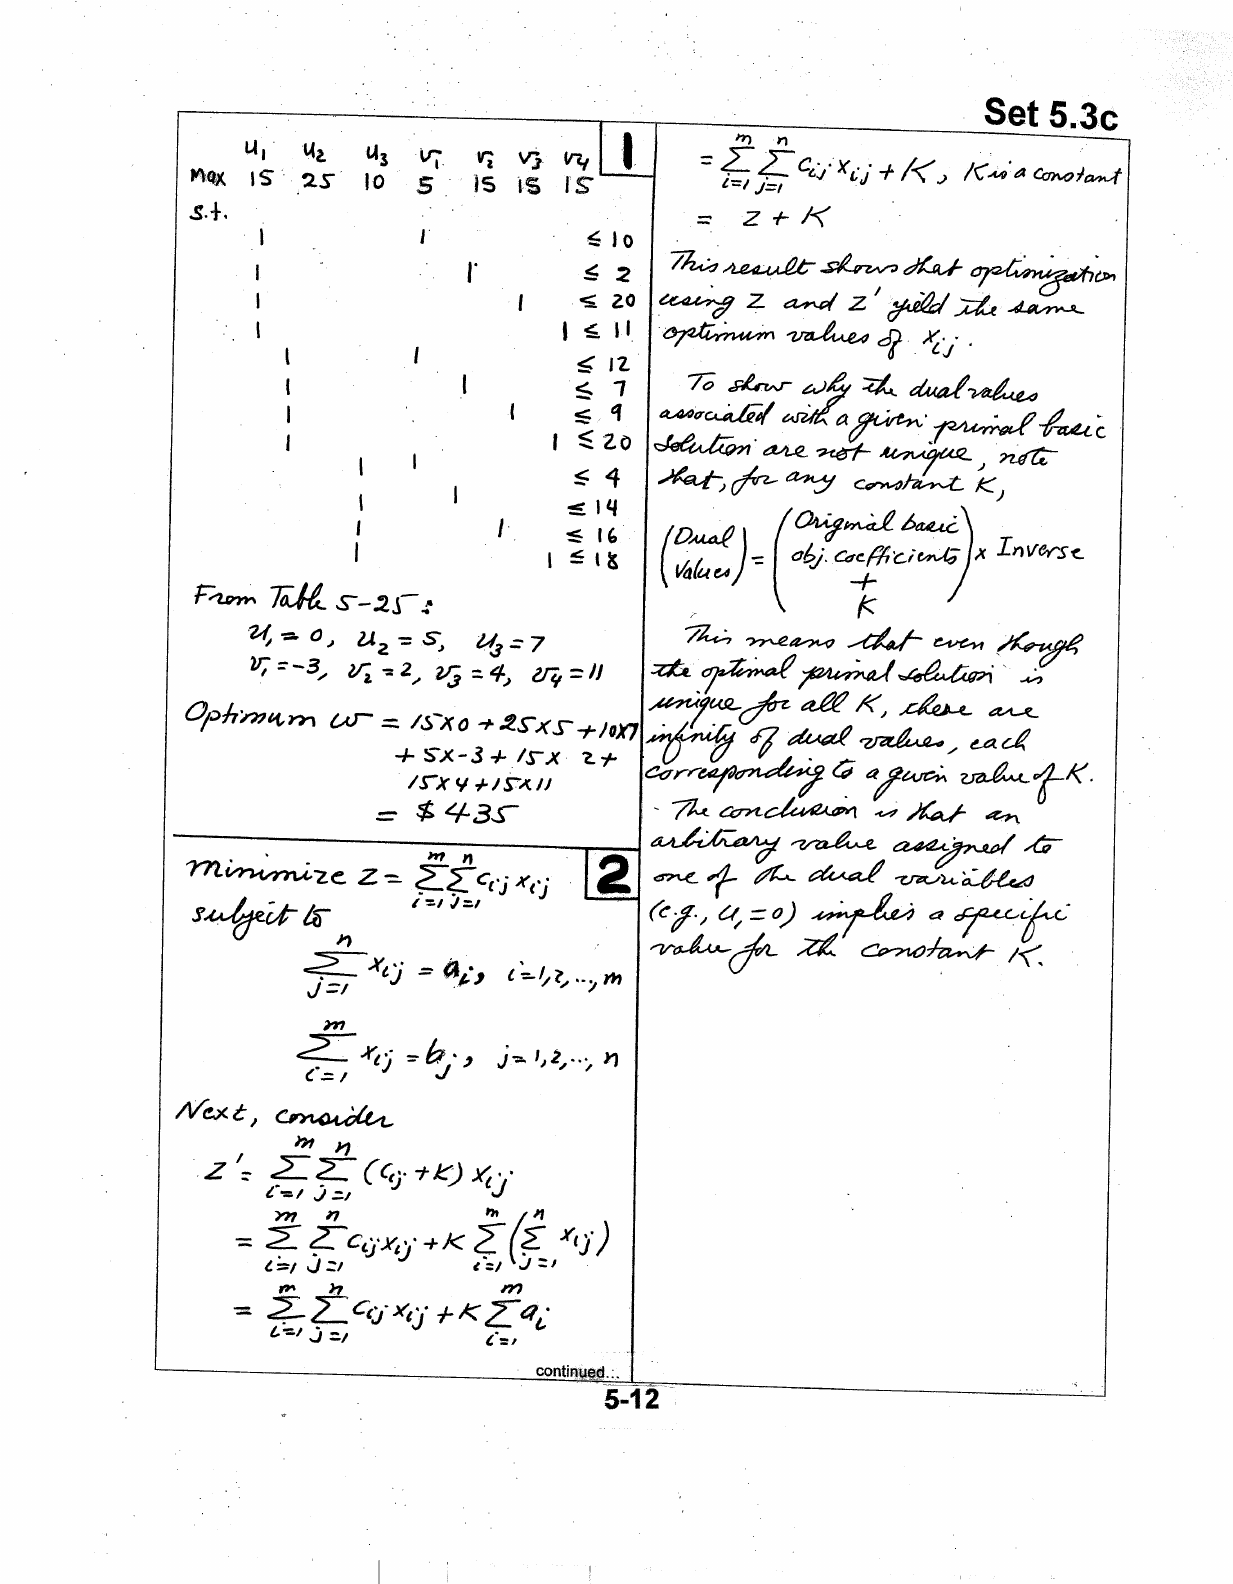 Set 5.3c
1
u1 u2 u3 v1 v2 v3 v4
Max 15 25 10 5 15 15 15
s.t.
1 1 ≤ 10
1 1 ≤ 2
1 1 ≤ 20
1 1 ≤ 11
1 1 ≤ 12
1 1 ≤ 7
1 1 ≤ 9
1 1 ≤ 20
1 1 ≤ 4
1 1 ≤ 14
1 1 ≤ 16
1 1 ≤ 18
From Table 5-25:
u1 = 0, u2 = 5, u3 = 7
v1 = -3, v2 = 2, v3 = 4, v4 = 11
Optimum w = 15x0 + 25x5 + 10x7
+ 5x-3 + 15x 2 +
15x4 + 15x11
= $435
2
Minimize z = m∑i=1 n∑j=1 cij xij
subject to
n∑j=1 xij = ai, i=1,2,...,m
m∑i=1 xij = bj, j=1,2,..., n
Next, consider
z' = m∑i=1 n∑j=1 (cij + K) xij
= m∑i=1 n∑j=1 cij xij + K m∑i=1 (n∑j=1 xij)
= m∑i=1 n∑j=1 cij xij + K m∑i=1 ai
continued...
= m∑i=1 n∑j=1 cij xij + K, K is a constant
= z + K
This result shows that optimization
using z and z' yield the same
optimum values of xij.
To show why the dual values
associated with a given primal basic
solution are not unique, note
that, for any constant K,
(Dual Values) = (Original basic obj. coefficients + K) x Inverse
This means that even though
the optimal primal solution is
unique for all K, there are
infinity of dual values, each
corresponding to a given value of K.
The conclusion is that an
arbitrary value assigned to
one of the dual variables
(e.g., u1 = 0) implies a specific
value for the constant K.
5-12